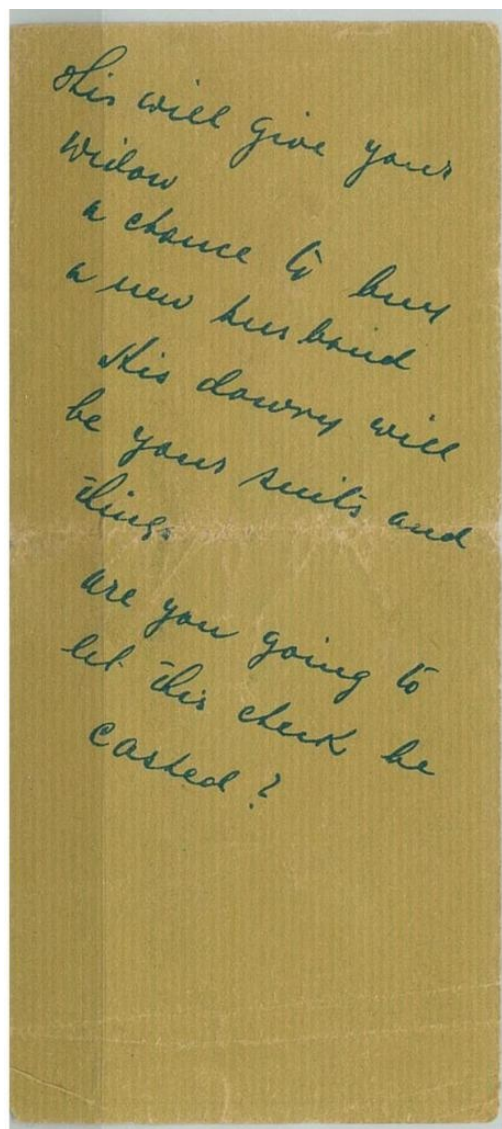 This will give your
widow
a chance to buy
a new husband
His dowry will
be your suits and
things
are you going to
let this check be
cashed?